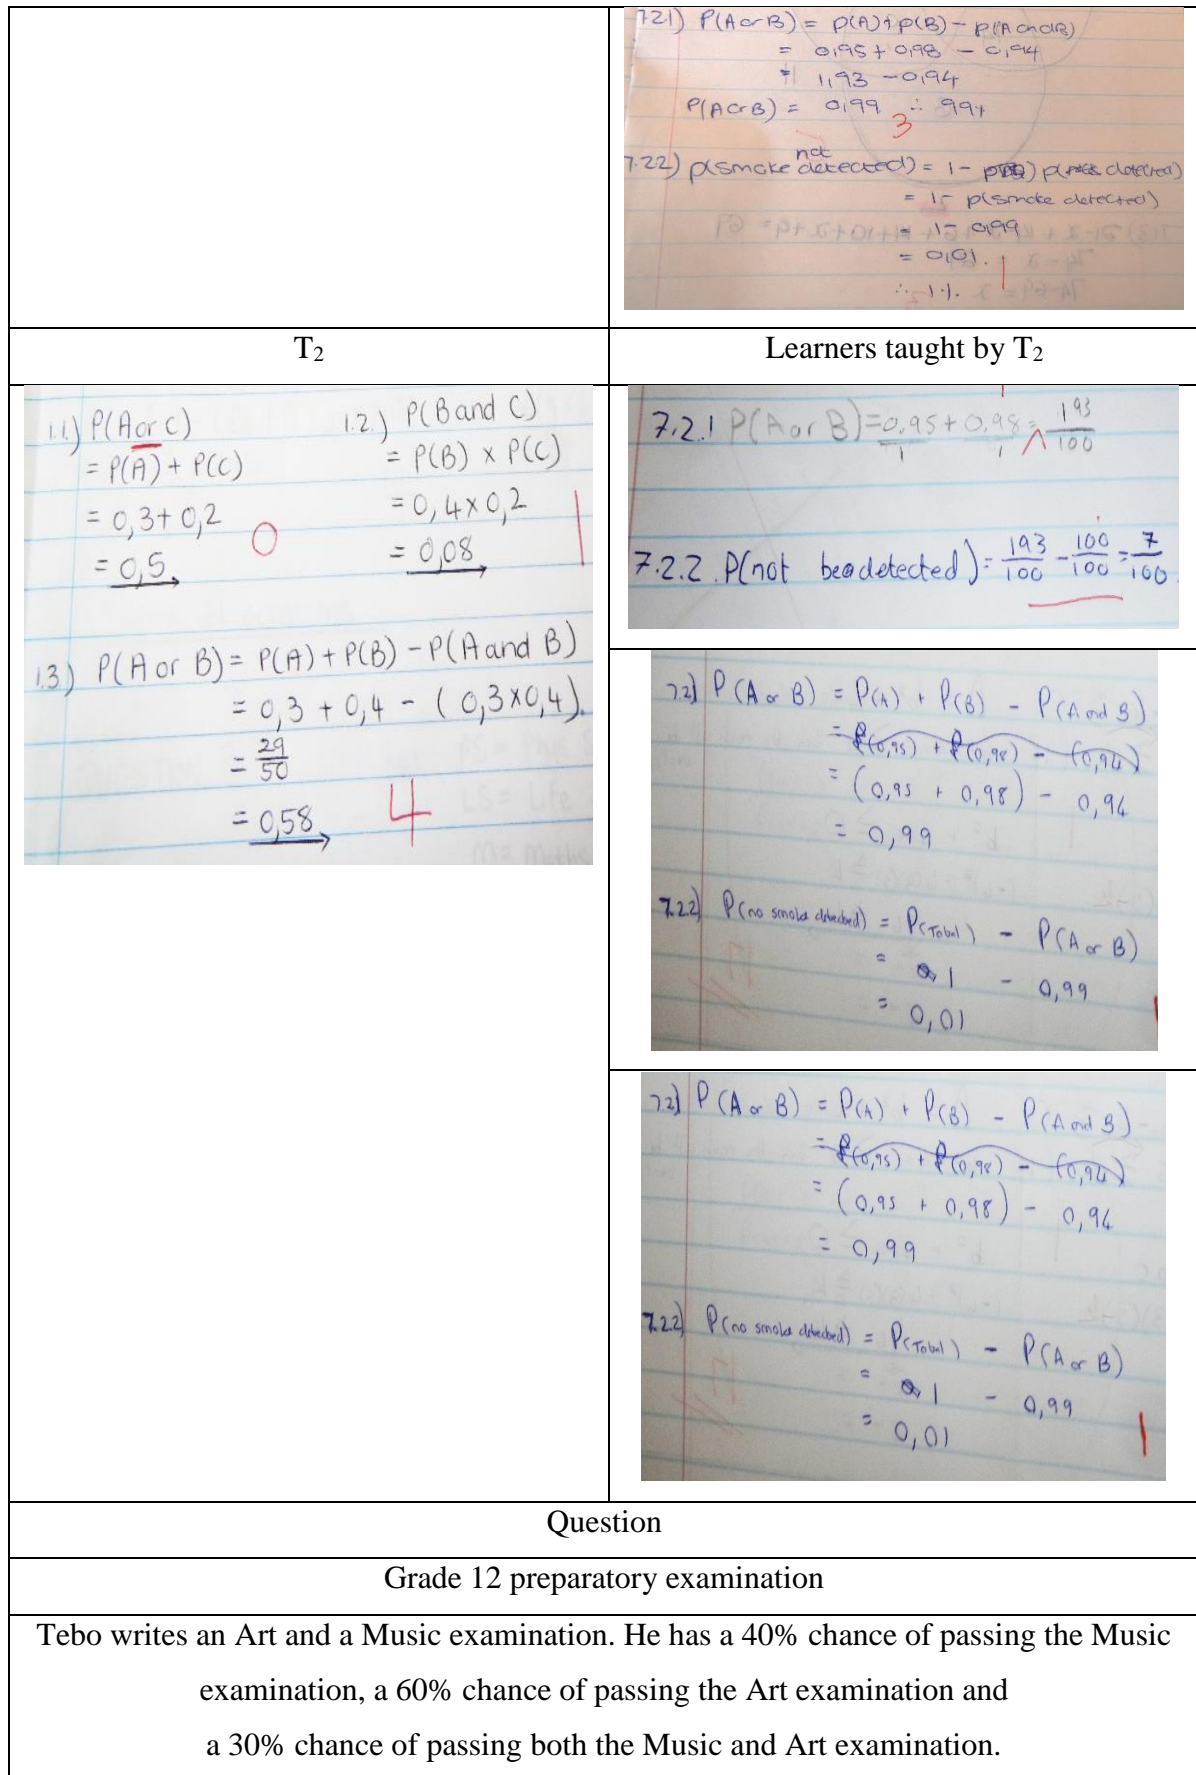 7.2.1) P(A or B) = P(A) + P(B) - P(A and B)
= 0,95 + 0,98 - 0,94
= 1,93 - 0,94
P(A or B) = 0,99 ∴ 99%
3
7.2.2) p(smoke not detected) = 1 - p( detected)
= 1 - p(smoke detected)
= 1 - 0,99
= 0,01.
1
∴ 1%.
T₂
Learners taught by T₂
1.1.) P(A or C)
= P(A) + P(C)
= 0,3 + 0,2
= 0,5
0
1.2.) P(B and C)
= P(B) x P(C)
= 0,4 x 0,2
= 0,08
1
1.3.) P(A or B) = P(A) + P(B) - P(A and B)
= 0,3 + 0,4 - (0,3 x 0,4).
= 29/50
= 0,58
4
7.2.1 P(A or B) = 0,95/1 + 0,98/1 = 193/100
7.2.2. P(not be detected) = 193/100 - 100/100 = 7/100
7.2) P(A or B) = P(A) + P(B) - P(A and B)
= P(0,95) + P(0,98) - (0,94)
= (0,95 + 0,98) - 0,94
= 0,99
7.2.2) P(no smoke detected) = P(Total) - P(A or B)
= 1 - 0,99
= 0,01
7.2) P(A or B) = P(A) + P(B) - P(A and B)
= P(0,95) + P(0,98) - (0,94)
= (0,95 + 0,98) - 0,94
= 0,99
7.2.2) P(no smoke detected) = P(Total) - P(A or B)
= 1 - 0,99
= 0,01
1
Question
Grade 12 preparatory examination
Tebo writes an Art and a Music examination. He has a 40% chance of passing the Music
examination, a 60% chance of passing the Art examination and
a 30% chance of passing both the Music and Art examination.